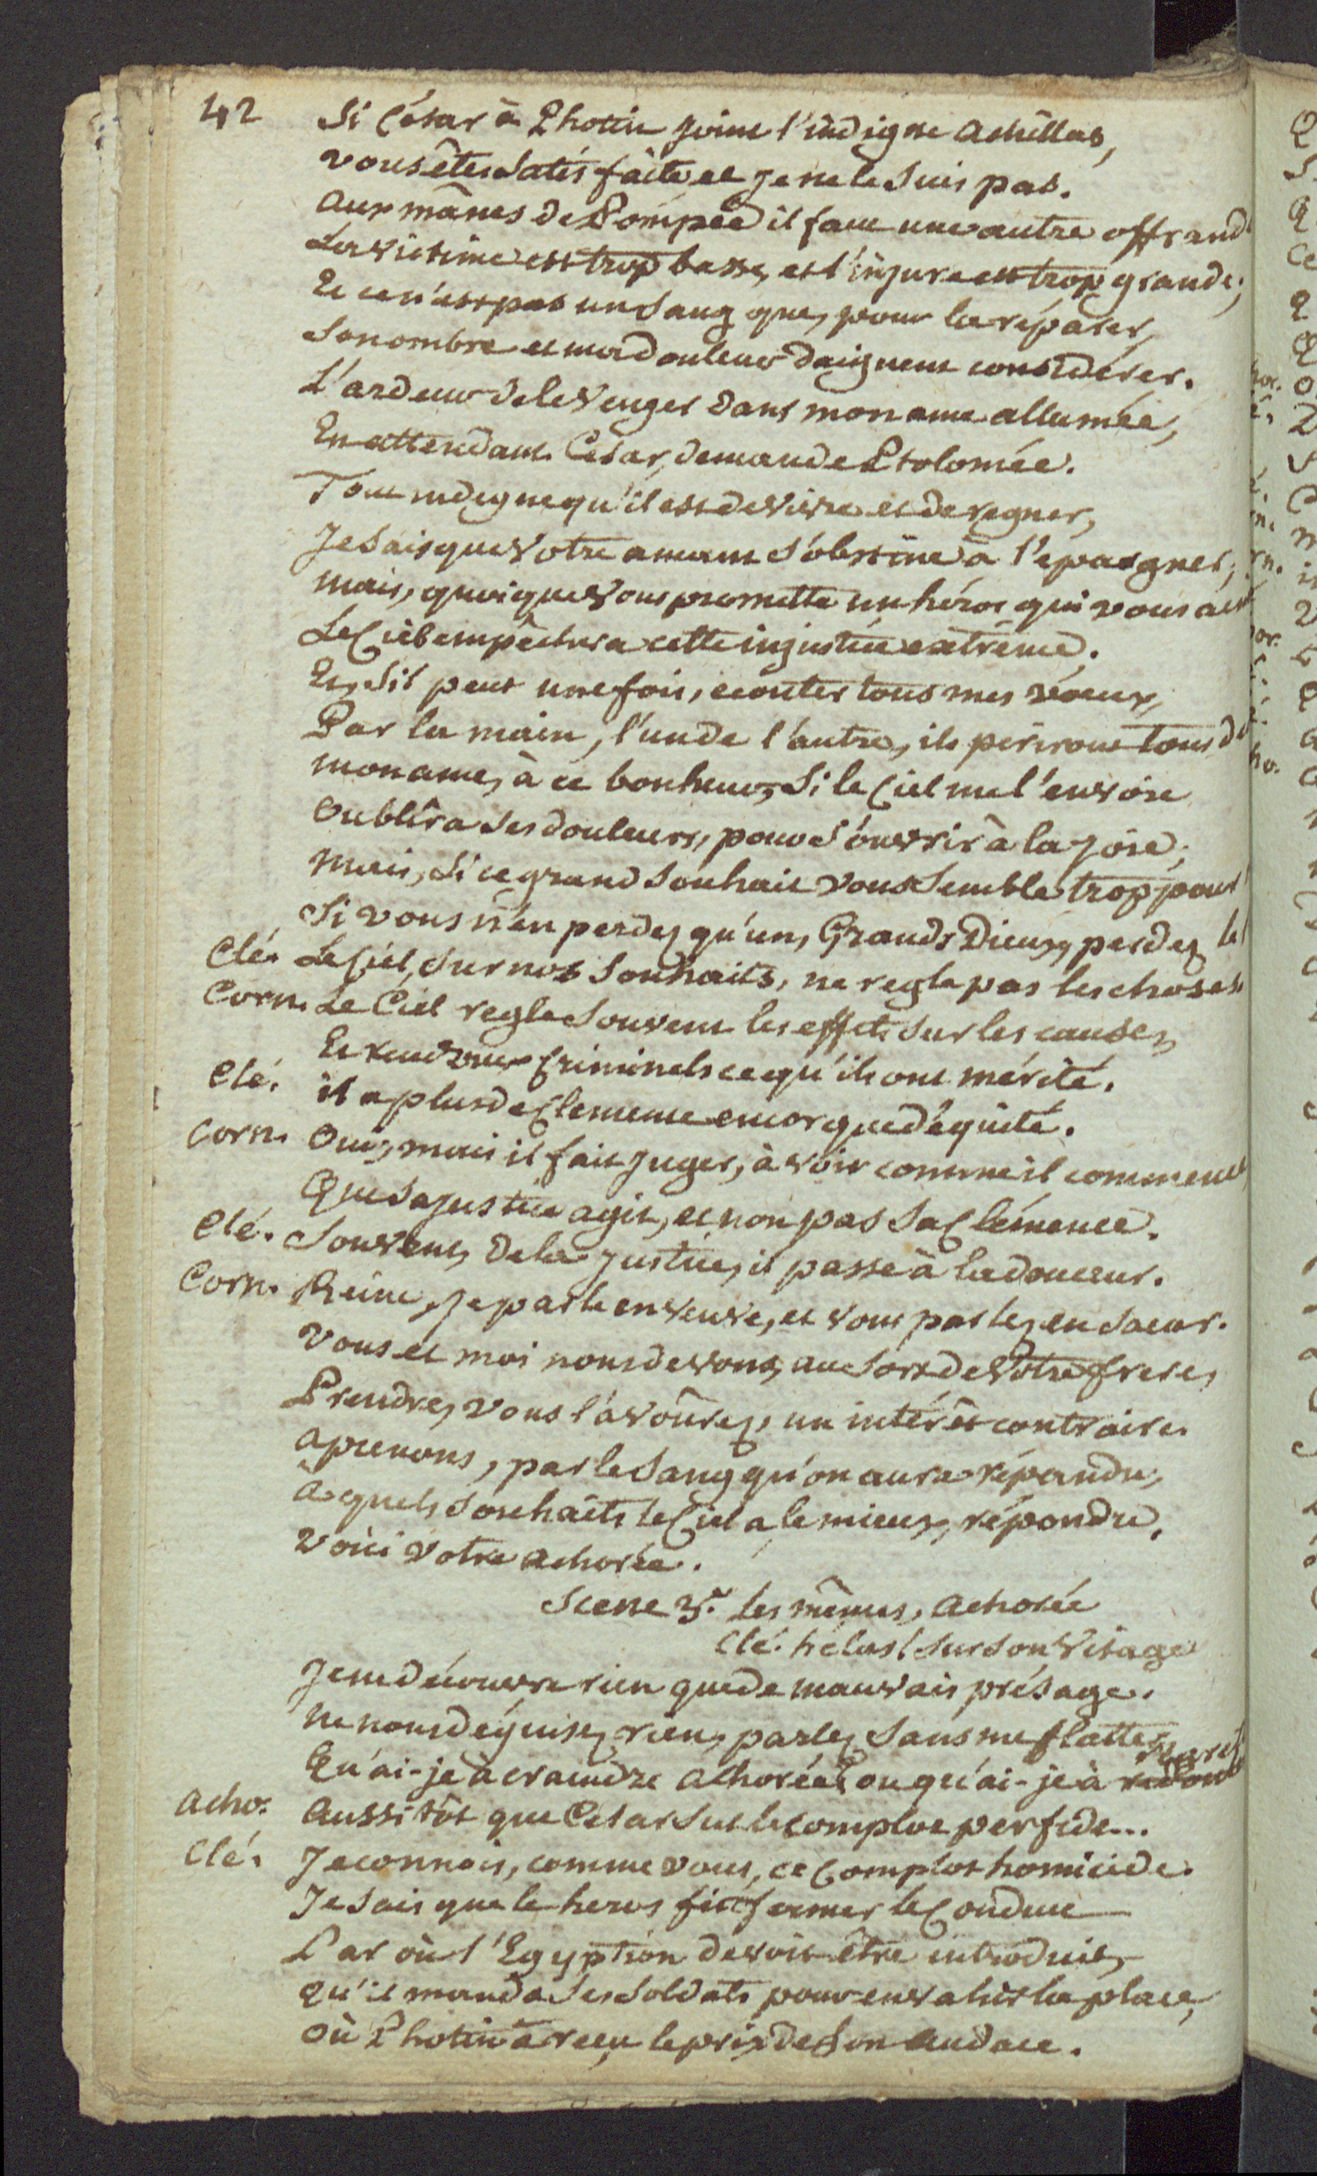 42
Si César à Photin joint l'indigne Achillas,
vous êtes Satisfaite et je ne le Suis pas.
Aux mânes de Pompée il faut une autre offrand
La victime est trop basse, et l'injure est trop grande;
Et ce n'est pas un Sang que, pour la réparer,
Son ombre et ma douleur daignent considérer.
L'ardeur de le venger dans mon ame allumée,
En attendant César, demande Ptolomée.
Tout indigne qu'il est de vivre et de regner,
Je Sais que votre amant S'obstine à l'épargner;
mais, quoique vous promette un héros qui vous aim
Le Ciel empêchera cette injustice extrême.
Et, S'il peut une fois, ecouter tous mes vœux,
Par la main, l'un de l'autre, ils periront tous d
mon ame, à ce bonheur, Si le Ciel me l'envoie
Oublîra Ses douleurs, pour S'ouvrir à la joie;
mais, Si ce grand Souhait vous Semble trop pour
Si vous n'en perdez qu'un, Grands Dieux, perdez le
Clé. Le Ciel, Sur nos Souhaits, ne regle pas les choses.
Corn. Le Ciel regle Souvent les effets Sur les causes,
Et rend aux Criminels ce qu'ils ont mérité.
Clé. il a plus de Clemence encor que d'équité.
Corn. Oui, mais il fait juger, à voir comme il commence
Que Sa justice agit, et non pas Sa Clémence.
Clé. Souvent, de la justice, il passe à la douceur.
Corn. Reine, je parle en veuve, et vous parlez en Sœur.
Vous et moi nous devons, au Sort de votre frere,
Prendre, vous l'avoûrez, un intérêt contraire.
Aprenons, par le Sang qu'on aura répandu,
à quels Souhaits le Ciel a, le mieux, répondu.
Voici votre Achorée.
Scene 3.e Les mêmes, Achorée
Clé. hélas! Sur Son visage
Je ne découvre rien que de mauvais présage.
Ne nous déguisez rien, parlez Sans me flatter,
Qu'ai-je à craindre Achorée? ou qu'ai-je à
Acho. Aussi tôt que César Sut le complot perfide...
Clé. Je connois, comme vous, ce Complot homicide.
Je Sais que le heros fit fermer le Conduit
Par où l'Egyptien devoit être introduit,
qu'il manda Ses Soldats pour envahir la place,
où Photin a reçu le prix de Son audace.